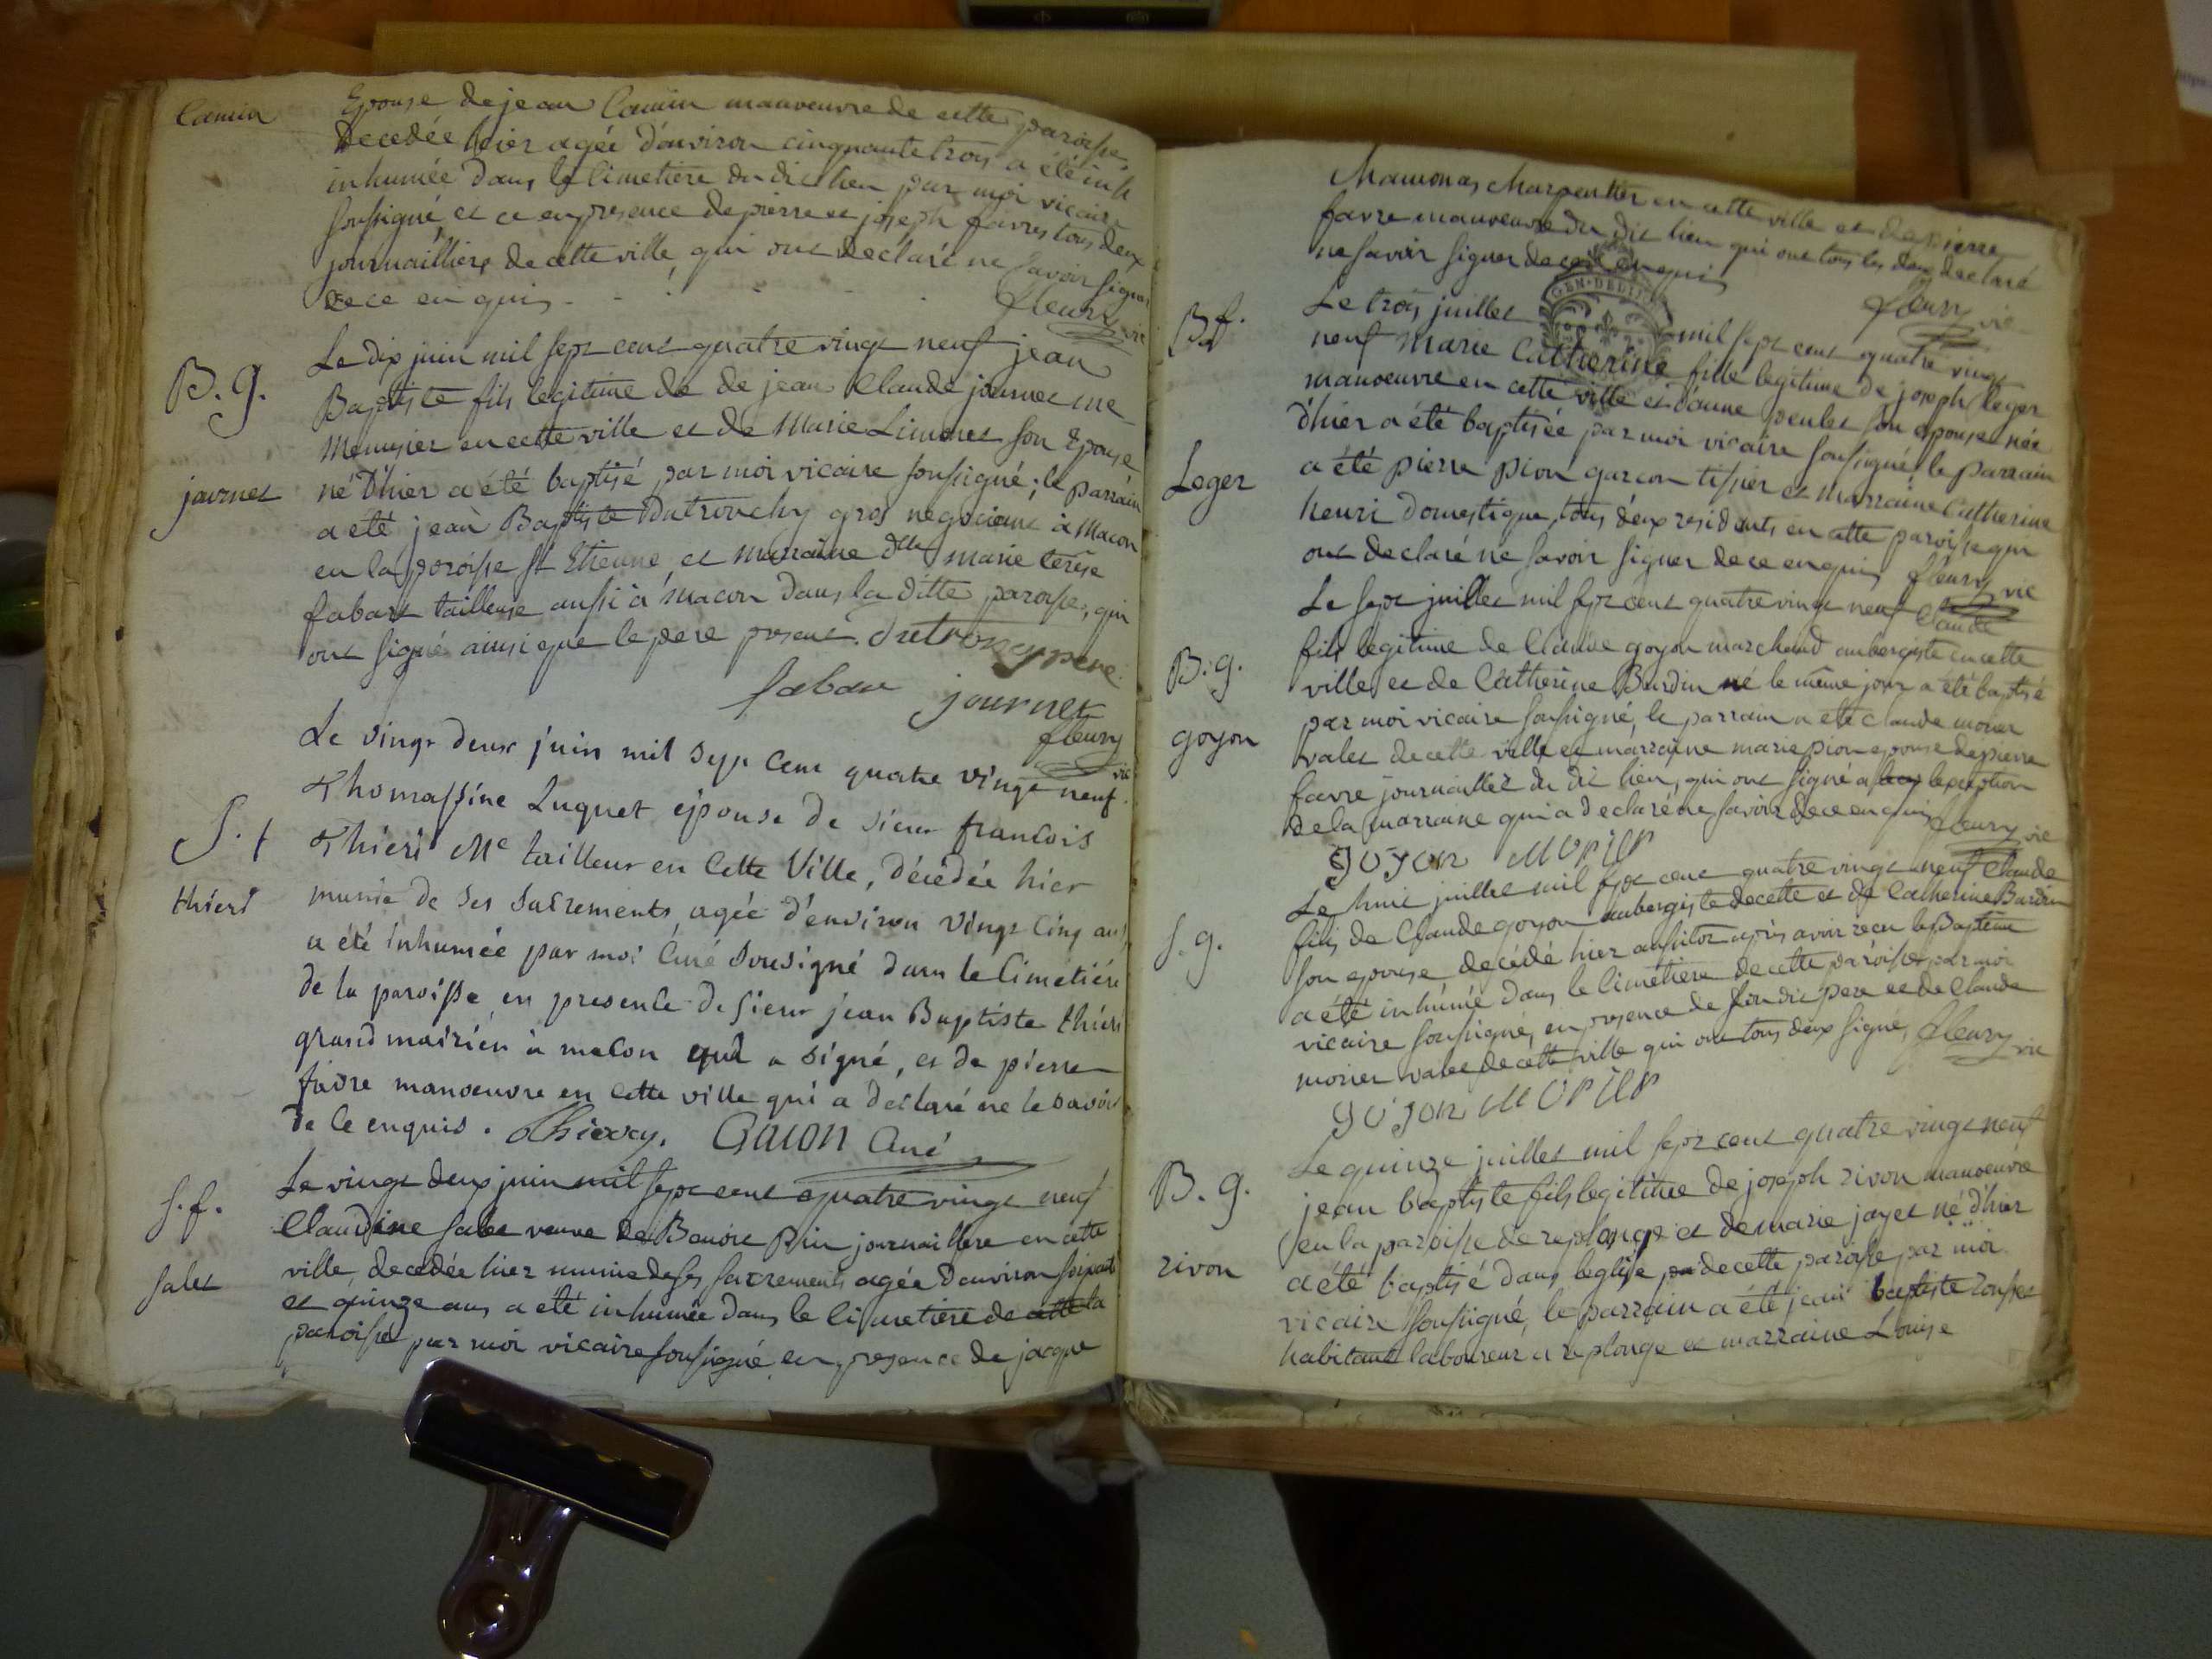 Camin
Epouse de jean Camin manoeuvre de cette paroisse,
decedée hier agée d'environ cinquante trois a été
inhumée dans le Cimetiere du dit lieu par moi vicaire
soussigné, et ce en presence de pierre et joseph favre tous deux
journailliers de cette ville, qui ont declaré ne savoir signer
de ce enquis
fleury vic
B. g.
journet
Le dix juin mil sept cent quatre vingt neuf jean
Baptiste fils legitime de de jean Claude journet me
menusier en cette ville et de Marie Limonet son Epouse
né d'hier a été baptisé par moi vicaire soussigné; le parrain
a été jean Baptiste Dutronchy gros negociant à Macon
en la paroisse St Etienne et marraine dlle marie terese
fabart tailleuse aussi à macon dans la ditte paroisse, qui
ont signé ainsi que le pere present. Dutroncy pere
fabar journet
fleury vic
S. f
thieri
Le vingt deux juin mil sept cent quatre vingt neuf
Thomassine Luquet épouse de sieur francois
Thieri Me tailleur en Cette Ville, décédée hier
munie de ses sacrements agée d'environ vingt cinq ans
a été inhumée par moi Curé sousigné dans le Cimetiére
de la paroisse en presence de sieur jean Baptiste thieri
grand mairien à macon qui a signé, et de pierre
favre manoeuvre en Cette ville qui a declaré ne le savoir
de Ce enquis. Thierry. Gacon Curé
S. f.
sales
Le vingt deux juin mil sept cent quatre vingt neuf
Claudine sales veuve de Benoit Pin journaillere en cette
ville, decedée hier munie de ses sacrements agée d'environ soixante
et quinze ans a été inhumée dans le Cimetiere de cette la
paroisse par moi vicaire soussigné en presence de jacque
Mauvonas charpentier en cette ville et de pierre
favre manoeuvre du dit lieu qui ont tous les deux declaré
ne savoir signer de ce enquis
fleury vic
GEN. DE DIJ
B f.
Leger
Le trois juillet mil sept cent quatre vingt
neuf Marie Catherine fille legitime de joseph leger
manoeuvre en cette ville et d'anne peulet son epouse née
d'hier a été baptisée par moi vicaire soussigné, le parrain
a été pierre pion garcon tissier et marraine Catherine
henri domestique, tous deux residents en cette paroisse qui
ont declaré ne savoir signer de ce enquis fleury vic
B. g.
goyon
Le sept juillet mil sept cent quatre vingt neuf Claude
fils legitime de Claude goyon marchand aubergiste en cette
ville et de Catherine Burdin né le même jour a été baptisé
par moi vicaire soussigné, le parrain a été claude morier
valet de cette ville et marraine marie pion epouse de pierre
favre journaillier du dit lieu, qui ont signé a lexeption
de la marraine qui a declaré ne savoir de ce enquis fleury vic
goyon morier
S. g.
Le huit juillet mil sept cent quatre vingt neuf Claude
fils de Claude goyon aubergiste de cette et de Catherine Burdin
son epouse decédé hier aussitot après avoir recu le Bapteme
a été inhumé dans le Cimetiere de cette paroisse par moi
vicaire soussigné, en presence de son dit pere et de Claude
morier valet de cette ville qui ont tous deux signé, fleury vic
goyon morier
B. g.
rivon
Le quinze juillet mil sept cent quatre vingt neuf
jean baptiste fils legitime de joseph rivon manoeuvre
en la paroisse de replonge et de marie jayet né d'hier
a été baptisé dans leglise pa de cette paroisse par moi
vicaire soussigné, le parrain a été jean baptiste
habitant laboureur a replonge et marraine Louise